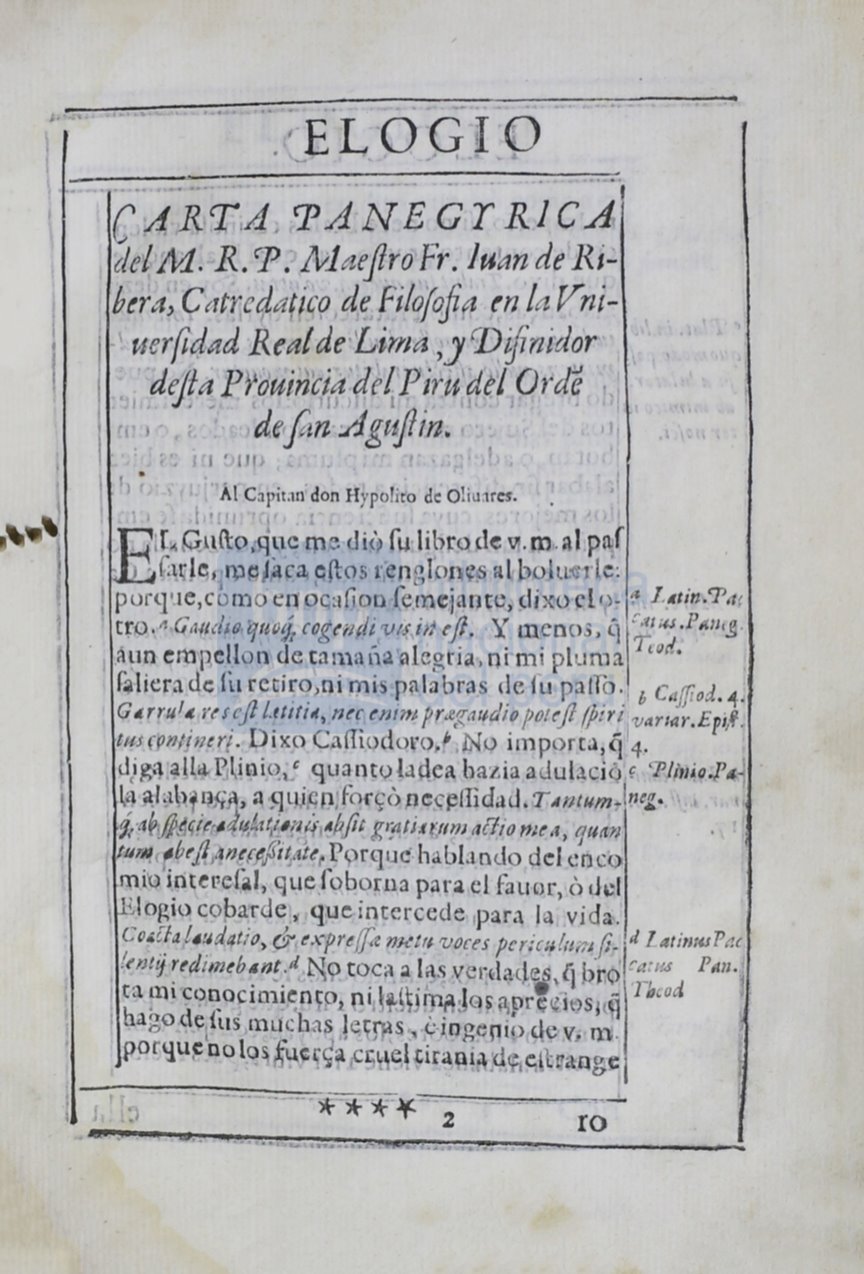 ELOGIO
CARTA PANEGYRICA
del M. R. P. Maeſtro Fr. Iuan de Ri-
bera, Catredatico de Filoſofia en la Vni-
uerſidad Real de Lima, y Difinidor
deſta Prouincia del Piru del Ordẽ
de ſan Aguſtin.
Al Capitan don Hypolito de Oliuares.
EL Guſto, que me diò ſu libro de v.m. al paſ
ſarle, me ſaca eſtos renglones al boluerle:
porque, como en ocaſion ſemejante, dixo el o-
tro. a Gaudio quoq́, cogendi vis in eſt. Y menos, q̃
a Latin. Pa
catus. Paneg.
Teod.
aun empellon de tamaña alegria, ni mi pluma
ſaliera de ſu retiro, ni mis palabras de ſu paſſo.
Garrula res eſt lætitia, nec enim præ gaudio poteſt ſpiri
tus contineri. Dixo Caſſiodoro. b No importa, q̃
b Caſſiod. 4.
variar. Epiſt.
4.
diga alla Plinio, c quanto ladea hazia adulaciõ
c Plinio. Pa-
neg.
la alabança, a quien forçò neceſſidad. Tantum-
q́, ab ſpecie adulationis abſit gratiarum actio mea, quan
tum abeſt a neceſſitate. Porque hablando del enco
mio intereſal, que ſoborna para el fauor, ò del
Elogio cobarde, que intercede para la vida.
Coacta laudatio, & expreſſa metu voces periculum ſi-
lentij redimebant. d No toca a las verdades, q̃ bro
d Latinus Pac
catus Pan.
Theod
ta mi conocimiento, ni laſtima los aprecios, q̃
hago de ſus muchas letras, è ingenio de v. m.
porque no los fuerça cruel tirania de eſtrange
**** 2 ro